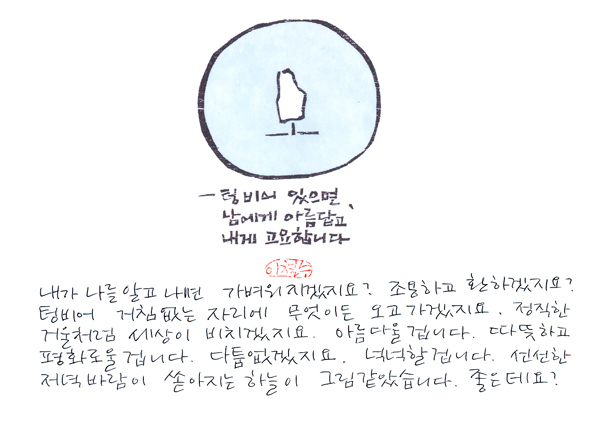 — 텅 비어 있으면,
남에게 아름답고,
내게 고요합니다
이철수
내가 나를 알고 나면 가벼워지겠지요? 조용하고 환하겠지요?
텅비어 거침없는 자리에 무엇이든 오고가겠지요. 정직한
거울처럼 세상이 비치겠지요. 아름다울겁니다. 따뜻하고
평화로울겁니다. 다툼없겠지요. 넉넉할겁니다. 선선한
저녁바람이 쏟아지는 하늘이 그림같았습니다. 좋은데요?